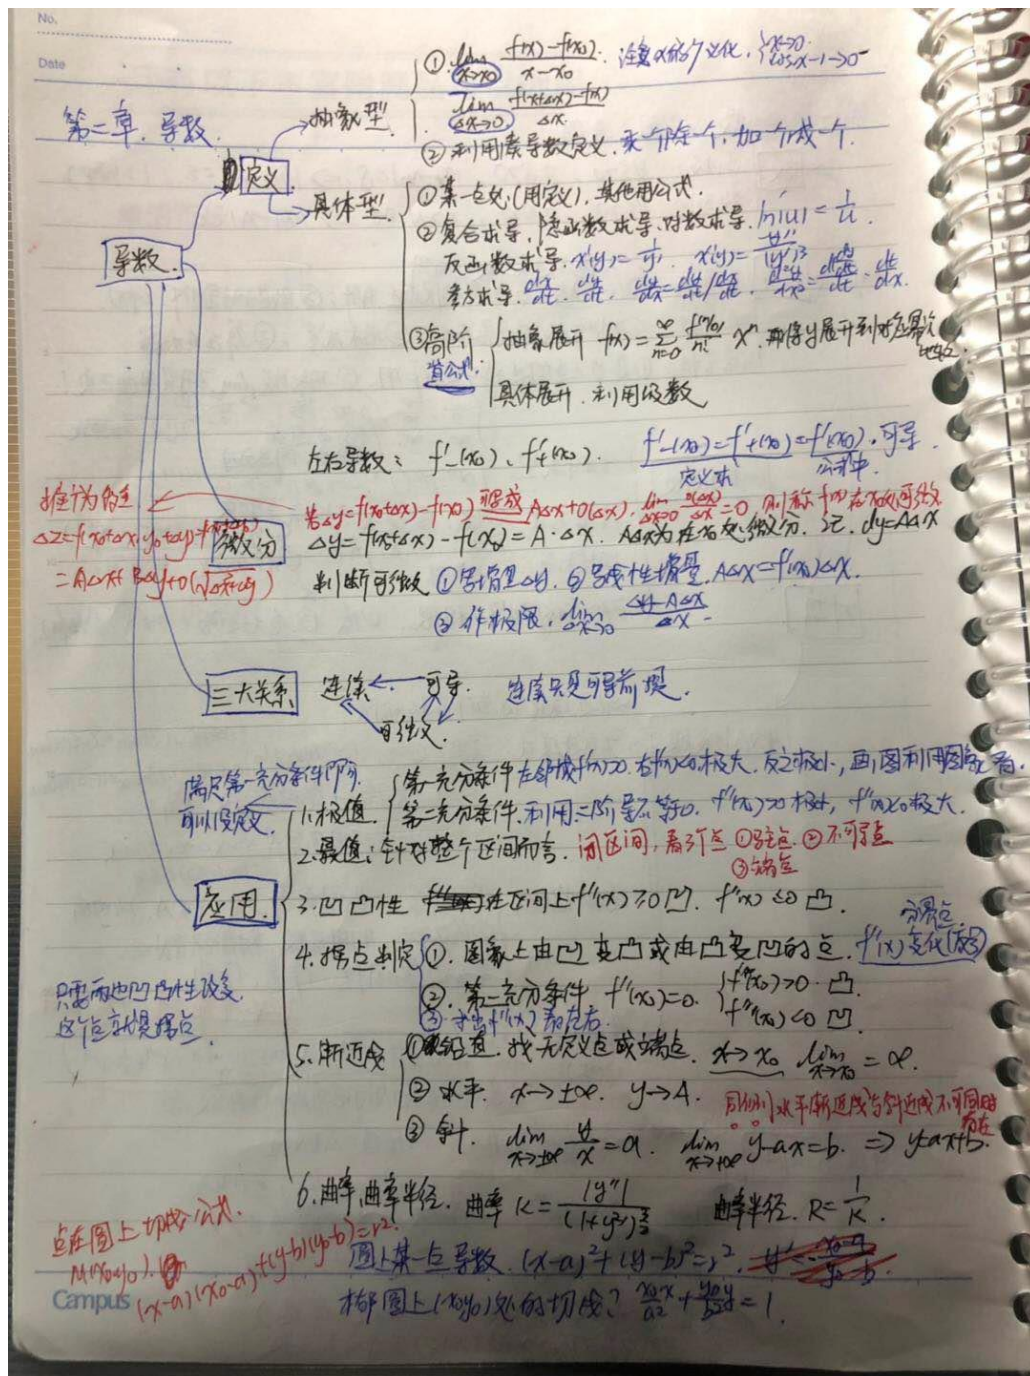 No.
Date
第二章. 导数.
导数.
定义
抽象型
① lim x→x₀ f(x)-f(x₀) / x-x₀. 注意x的广义化. {x→0. cosx-1→0⁻
lim Δx→0 f(x+Δx)-f(x) / Δx.
② 利用凑导数定义. 乘一个除一个, 加一个减一个.
具体型
① 某一点处(用定义), 其他用公式.
② 复合求导, 隐函数求导, 对数求导. ln|u| = 1/u.
反函数求导. x'(y) = 1/y'.
参方求导. dx/dt. dy/dt. dy/dx = dy/dt / dx/dt.
③ 高阶
f(x) = ∑ n=0 ∞ f⁽ⁿ⁾(0)/n! xⁿ.
抽象展开
具体展开. 利用级数
左右导数: f'₋(x₀)、f'₊(x₀). f'₋(x₀)=f'₊(x₀)=f'(x₀). 可导.
定义求 公式求.
推广为多
ΔZ=f(x₀+Δx, y₀+Δy)-
=AΔx+BΔy+0(√Δx²+Δy²)
若Δy=f(x₀+Δx)-f(x₀) 可写成 AΔx+0(Δx). lim Δx→0 0(Δx)/Δx=0, 则称f(x)在x₀处可微
微分
Δy=f(x₀+Δx)-f(x₀)=A·Δx. AΔx为在x₀处微分. 记. dy=AΔx
判断可微 ①写增量Δy. ②写线性增量. AΔx=f'(x₀)Δx.
③ 作极限. lim Δx→0 Δy-AΔx / Δx.
三大关系
连续 ← 可导. 连续只是可导前提.
可微.
应用.
满足第一充分条件即可.
可以没定义.
1. 极值.
第一充分条件 左邻域f'(x)>0. 右f'(x)<0.极大. 反之极小,
第二充分条件. 利用二阶导不等0. f''(x)>0 极小, f''(x)<0极大.
2. 最值: 针对整个区间而言. 闭区间, 看3个点 ①驻点. ②不可导点
③端点
3. 凹凸性 在区间上f''(x)≥0凹. f''(x)≤0凸.
4. 拐点判定 ①. 图象上由凹变凸或由凸变凹的点. f''(x)变化
②. 第二充分条件. f''(x₀)=0. {f'''(x₀)>0. 凸. f'''(x₀)<0 凹.
③ 求出f''(x)看左右.
只要两边凹凸性改变.
这个点就是拐点.
5. 渐近线 ① 铅直. 找无定义点或端点. x→x₀ lim x→x₀ = ∞.
② 水平. x→±∞. y→A. 同侧水平渐近线与斜近线不可同时存在
③ 斜. lim x→±∞ y/x = a. lim x→±∞ y-ax=b. ⇒ y=ax+b.
6. 曲率, 曲率半径. 曲率 K = |y''| / (1+y'²)^3/2 曲率半径. R=1/K.
点在圆上切线公式.
M(x₀,y₀).
(x-a)(x₀-a)+(y-b)(y₀-b)=r².
圆上某一点导数. (x-a)²+(y-b)²=r².
椭圆上(x₀y₀)处的切线? x₀x/a²+y₀y/b²=1.
Campus